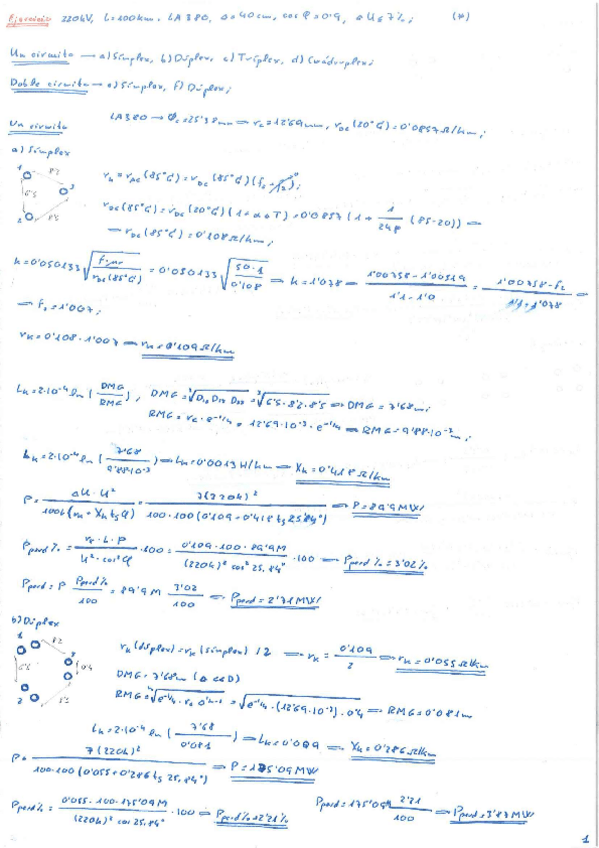 Ejercicio 220kV, L=100km, LA380, Δ=40cm, cos φ=0'9, ΔU≤7%; (*)
Un circuito → a) Símplex, b) Dúplex, c) Tríplex, d) Cuádruplex;
Doble circuito → e) Símplex, f) Dúplex;
Un circuito LA380 → Φc=25'38mm → rc=12'69mm, rDC(20°C)=0'0857Ω/km;
a) Símplex
1 8'2 3 6'5 2 8'5
rk = rAC(85°C) = rDC(85°C)(f2
rDC(85°C) = rDC(20°C)(1+α·ΔT) = 0'0857(1+ (85-20)) →
→ rDC(85°C)=0'108Ω/km;
k=0'050133 √(f·μr / rDC(85°C)) = 0'050133 √(50·1 / 0'108) → k=1'078 → (1'00758-1'00519)/(1'1-1'0) = (1'00758-f2)/(1'1-1'078) →
→ f2=1'007;
rk=0'108·1'007 → rk=0'109Ω/km
Lk=2·10⁻⁴ ln(DMG/RMG), DMG=∛(D12 D13 D23)=∛(6'5·8'2·8'5) → DMG=7'68m;
RMG=rc·e^(-1/4)=12'69·10⁻³·e^(-1/4) → RMG=9'88·10⁻³m;
Lk=2·10⁻⁴ ln(7'68/9'88·10⁻³) → Lk=0'0013H/km → Xk=0'418Ω/km
P=ΔU·U²/100L(rk+Xk tg φ)=7(220k)²/100·100(0'109+0'418 tg 25'84°) → P=89'9MW
Pperd%=rk·L·P/U²·cos²φ·100=0'109·100·89'9M/(220k)² cos² 25'84°·100 → Pperd%=3'02%
Pperd=P Pperd%/100=89'9M 3'02/100 → Pperd=2'71MW
b) Dúplex
1 8'2 3 6'5 0'4 2 8'5
rk(dúplex)=rk(símplex)/2 → rk=0'109/2 → rk=0'055Ω/km
DMG=7'68m (Δ<<D)
→ RMG=0'081m
Lk=2·10⁻⁴ ln(7'68/0'081) → Xk=0'286Ω/km
P=7(220k)²/100·100(0'055+0'286 tg 25'84°) → P=175'09MW
Pperd%=0'055·100·175'09M/(220k)² cos 25'84°·100 → Pperd%=2'21% Pperd=175'09M 2'21/100 → Pperd=3'87MW
1